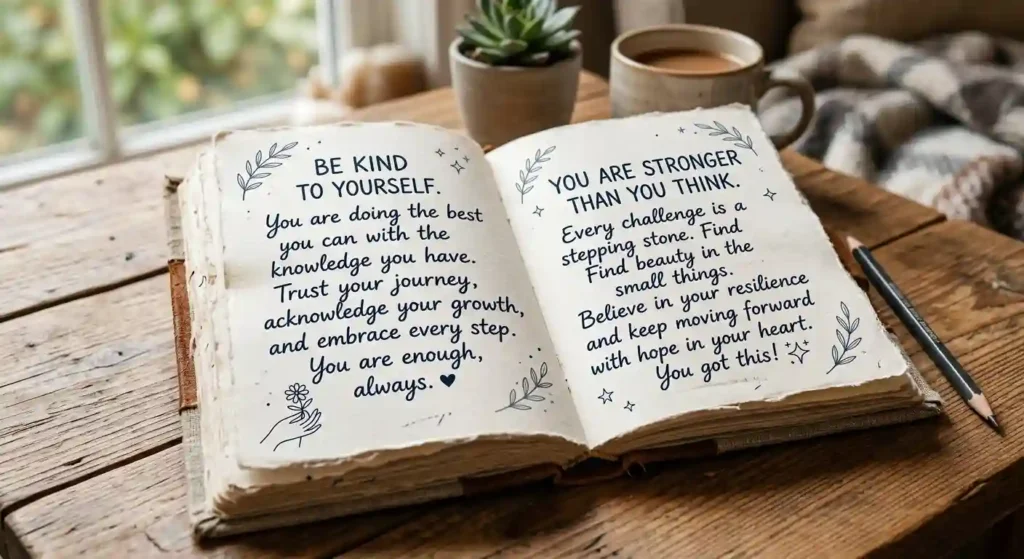 BE KIND
TO YOURSELF.
You are doing the best
you can with the
knowledge you have.
Trust your journey,
acknowledge your growth,
and embrace every step.
You are enough,
always. ♥
YOU ARE STRONGER
THAN YOU THINK.
Every challenge is a
stepping stone. Find
Find beauty in the
small things.
Believe in your resilience
and keep moving forward
with hope in your heart.
You got this!